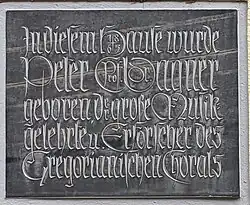 In diesem Hause wurde
Peter Prof. Dr. Wagner
geboren Dr große Musik
gelehrte u. Erforscher des
Gregorianischen Chorals